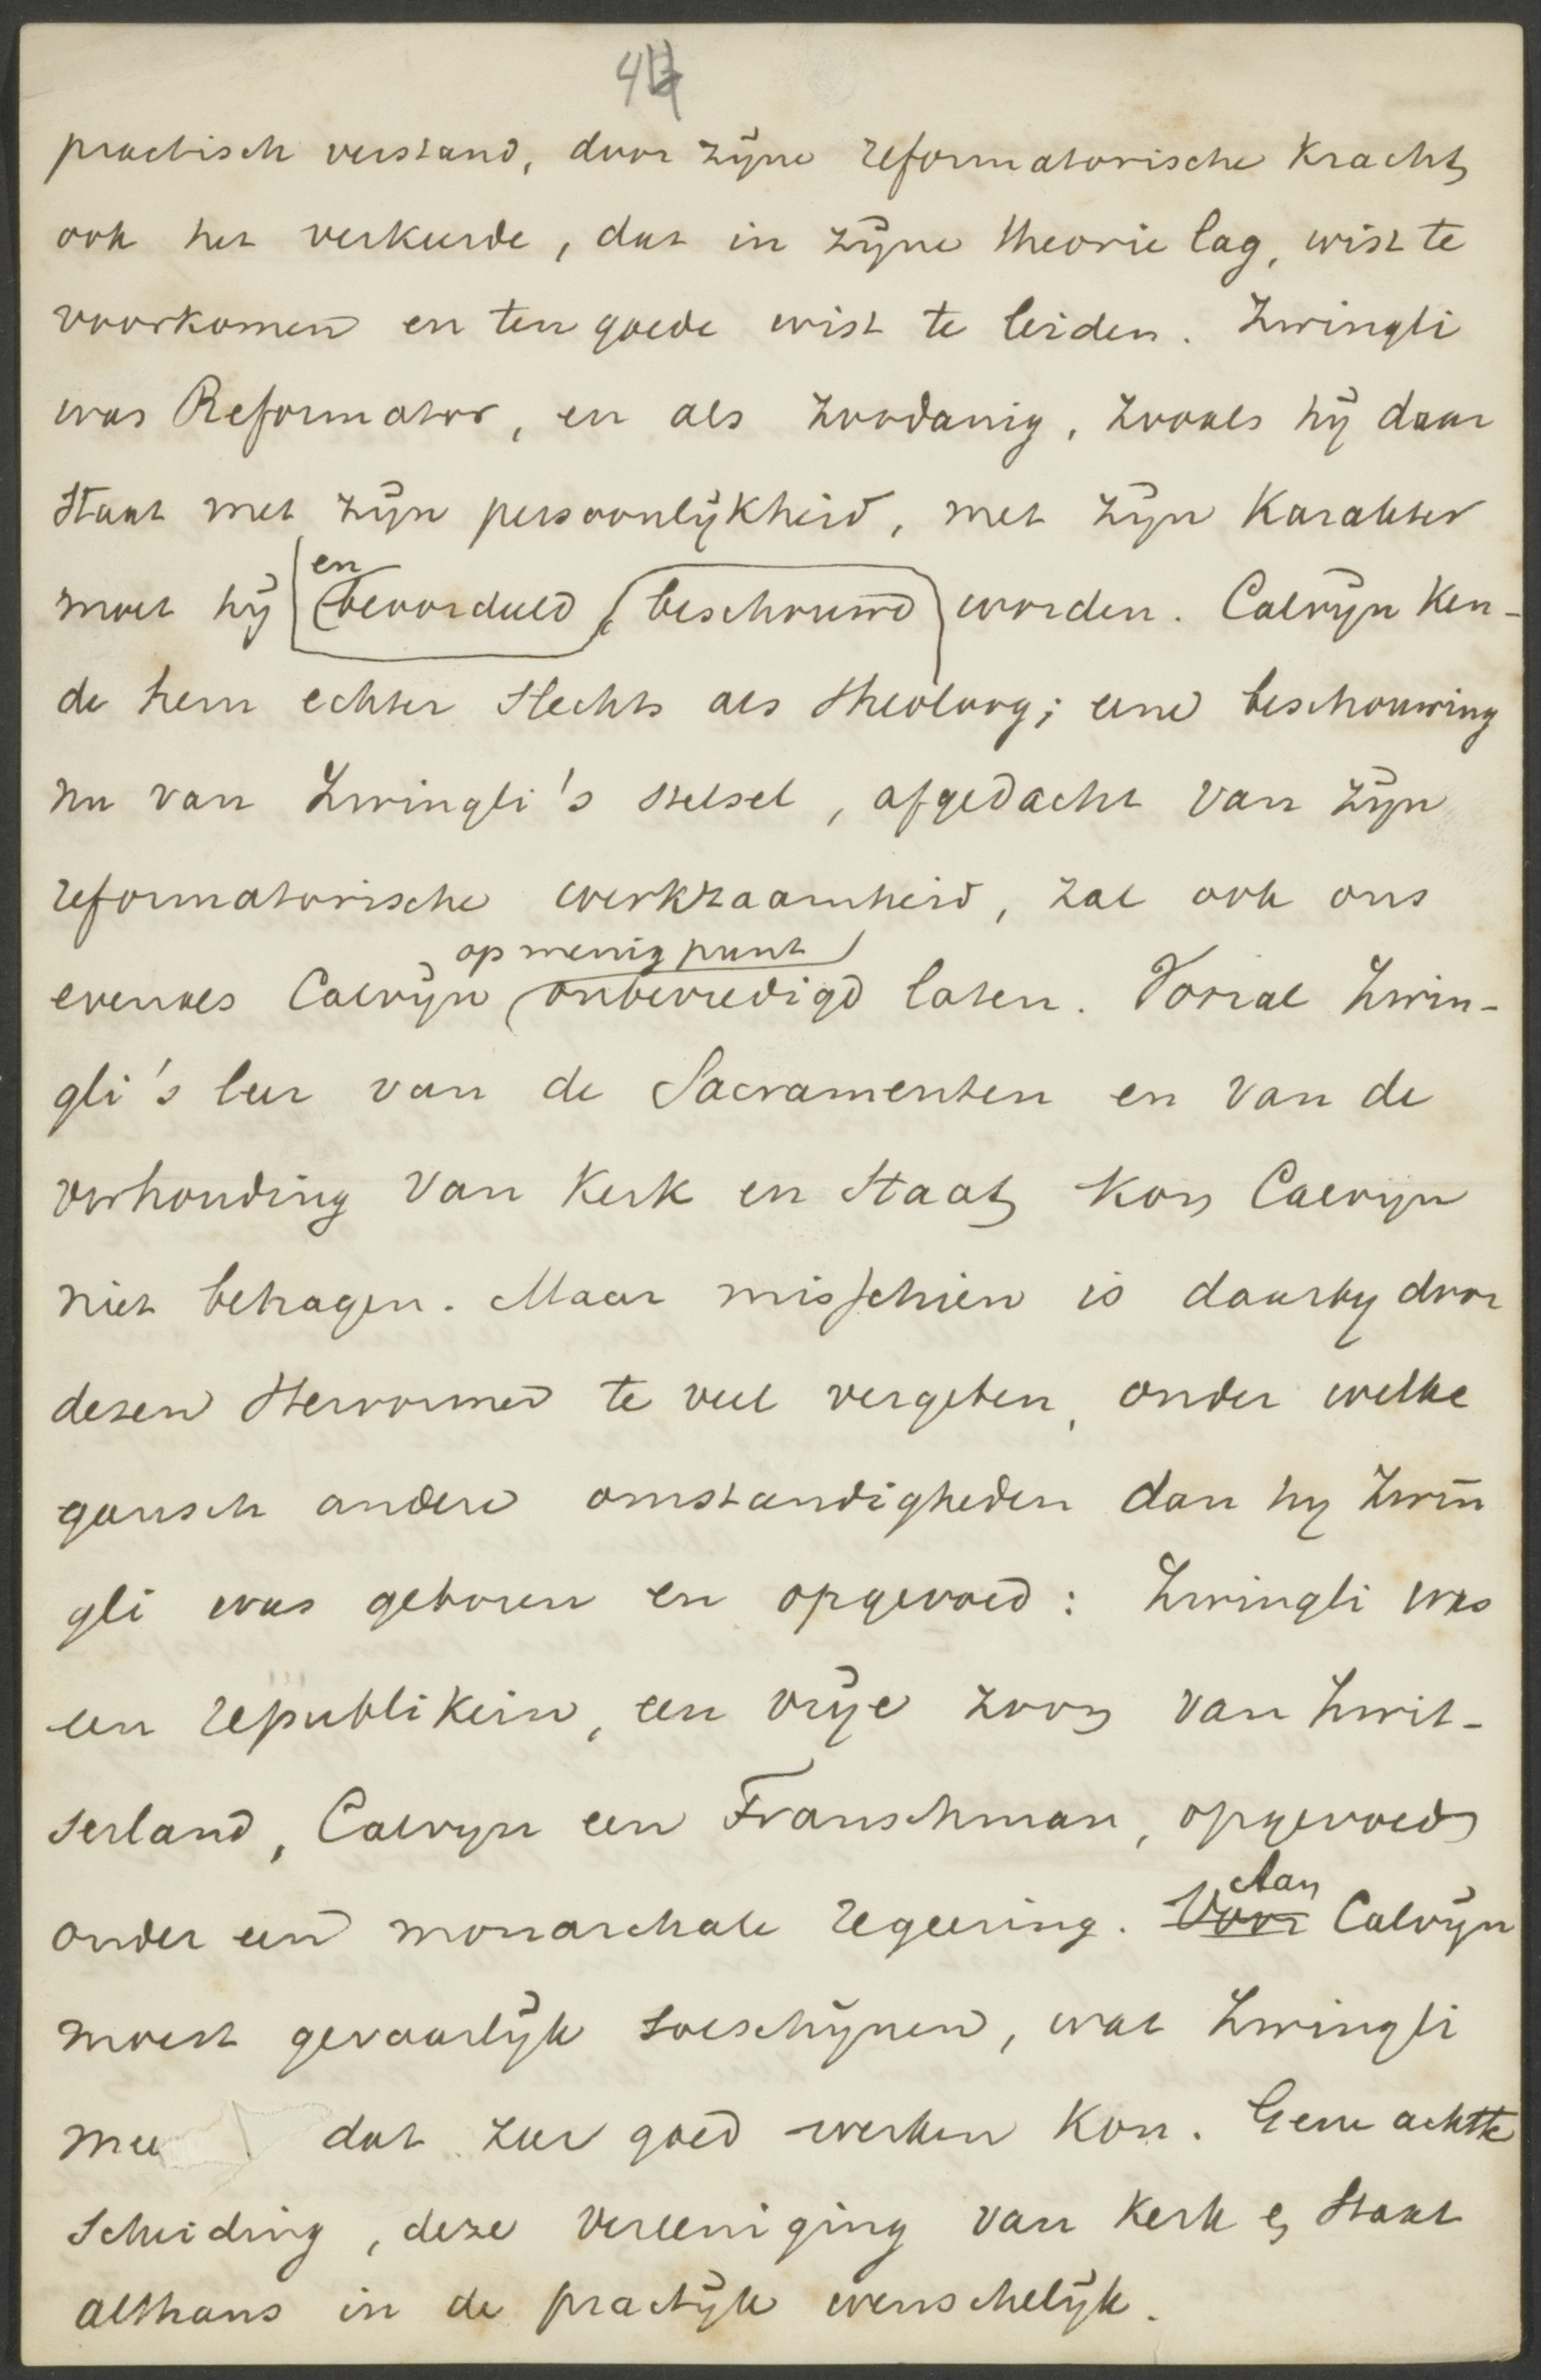 4
practisch verstand, door zijne reformatorische kracht
ook het verkeerde, dat in zijne theorie lag, wist te
voorkomen en ten goede wist te leiden. Zwingli
was Reformator, en als zoodanig, zooals hij daar
staat met zijn persoonlijkheid, met zijn karakter
en
moet hij beoordeeld beschouwd worden. Calvijn ken-
de hem echter slechts als theoloog; eene beschouwing
nu van Zwingli's stelsel, afgedacht van zijn
reformatorische werkzaamheid, zal ook ons
op menig punt
evenals Calvijn onbevredigd laten. Vooral Zwin-
gli's leer van de Sacramenten en van de
verhouding van Kerk en Staat kon Calvijn
niet behagen. Maar misschien is daarby door
dezen Hervormer te veel vergeten, onder welke
gansch andere omstandigheden dan hy Zwin
gli was geboren en opgevoed: Zwingli was
een republikein, een vrije zoon van Zwit-
serland, Calvyn een Franschman, opgevoed
onder een monarchale regeering. Voor Calvijn
Aan
moest gevaarlijk toeschijnen, wat Zwingli
mee dat zeer goed werken kon. Gene achtte
scheiding, deze vereeniging van Kerk en Staat
althans in de practijk wenschelijk.